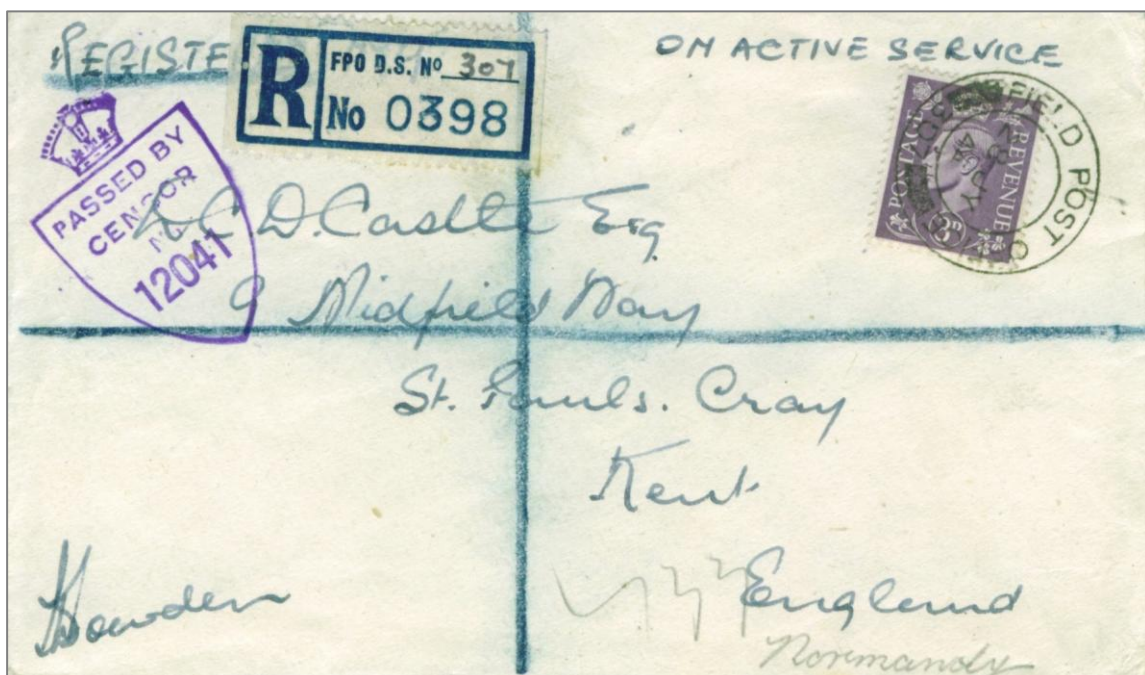 REGISTE
R
FPO D.S. No 307
No 0398
ON ACTIVE SERVICE
POSTAGE REVENUE
3D
FIELD POST O
28 JY 44
PASSED BY
CENSOR
No
12041
D. Castle Esq
9 Midfield Way
St. Pauls. Cray
Kent
England
Normandy